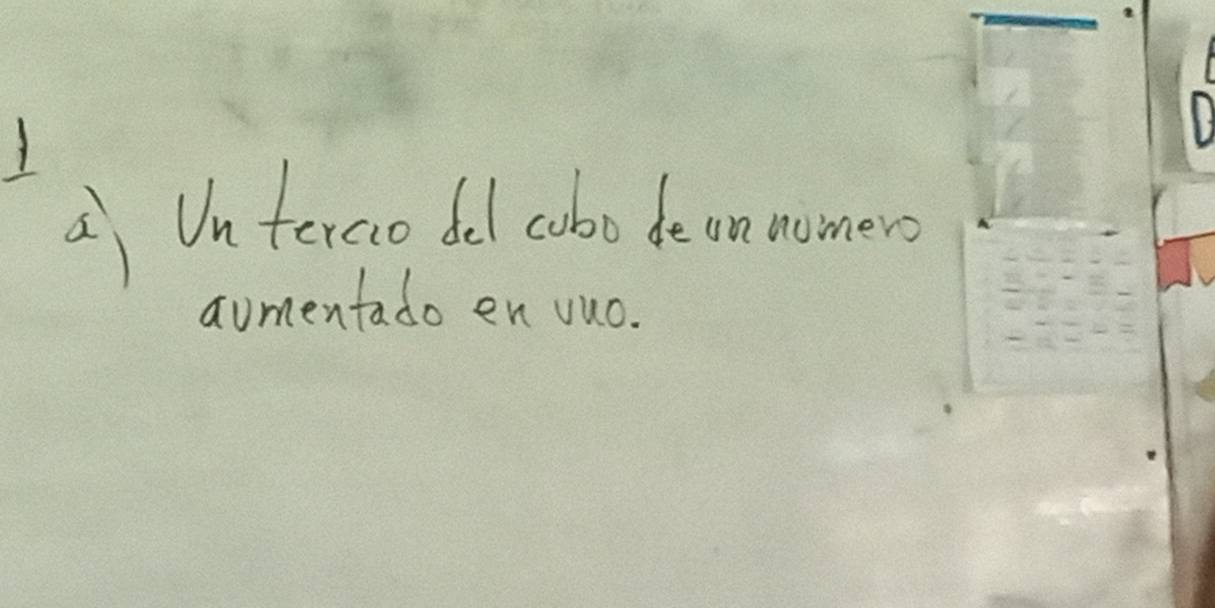 1
a) Un tercio del cubo de un número
aumentado en uno.
D